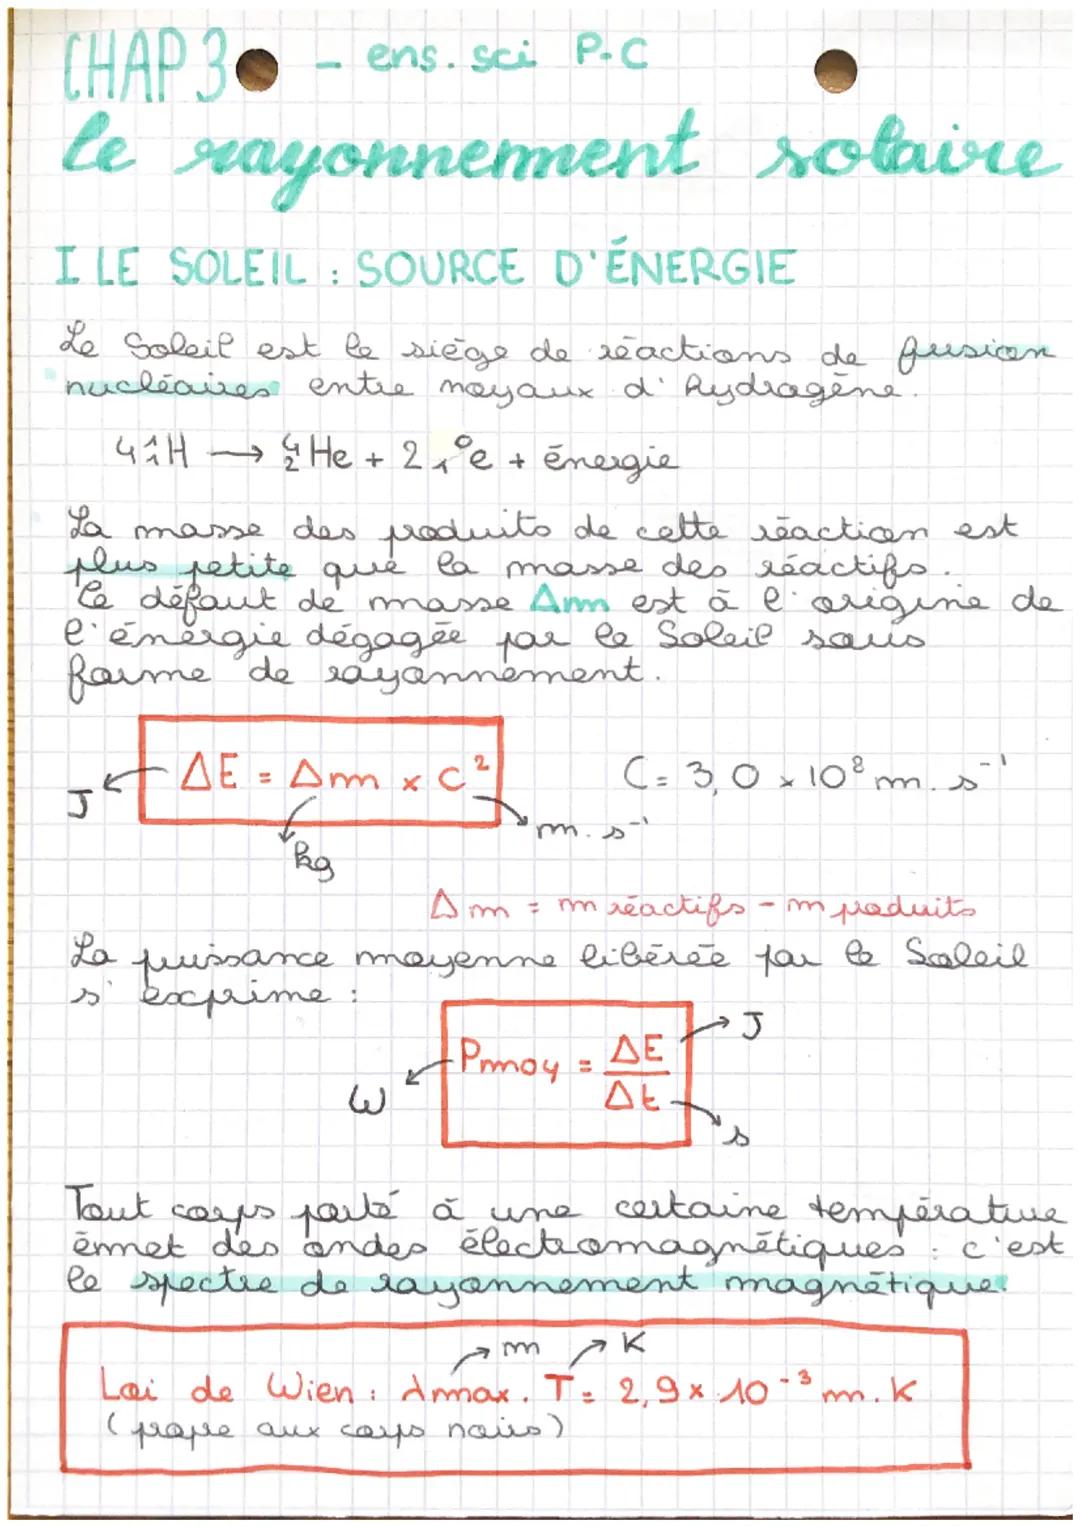 CHAP 3 - ens. sci P-C
le rayonnement solaire
I LE SOLEIL : SOURCE D'ÉNERGIE
Le Soleil est le siège de réactions de fusion
nucléaires entre noyaux d'hydrogène.
4 ¹₁H → ⁴₂He + 2 ⁰₁e + énergie
La masse des produits de cette réaction est
plus petite que la masse des réactifs.
Ce défaut de masse Δm est à l'origine de
l'énergie dégagée par le Soleil sous
forme de rayonnement.
ΔE = Δm × C² C = 3,0 × 10⁸ m.s⁻¹
J
m.s⁻¹
kg
Δm = m réactifs - m produits
La puissance moyenne libérée par le Soleil
s'exprime :
J
Pmoy = ΔE/Δt
W
s
Tout corps porté à une certaine température
émet des ondes électromagnétiques : c'est
le spectre de rayonnement magnétique.
m K
Loi de Wien : λmax . T = 2,9 × 10⁻³ m.K
(propre aux corps noirs)